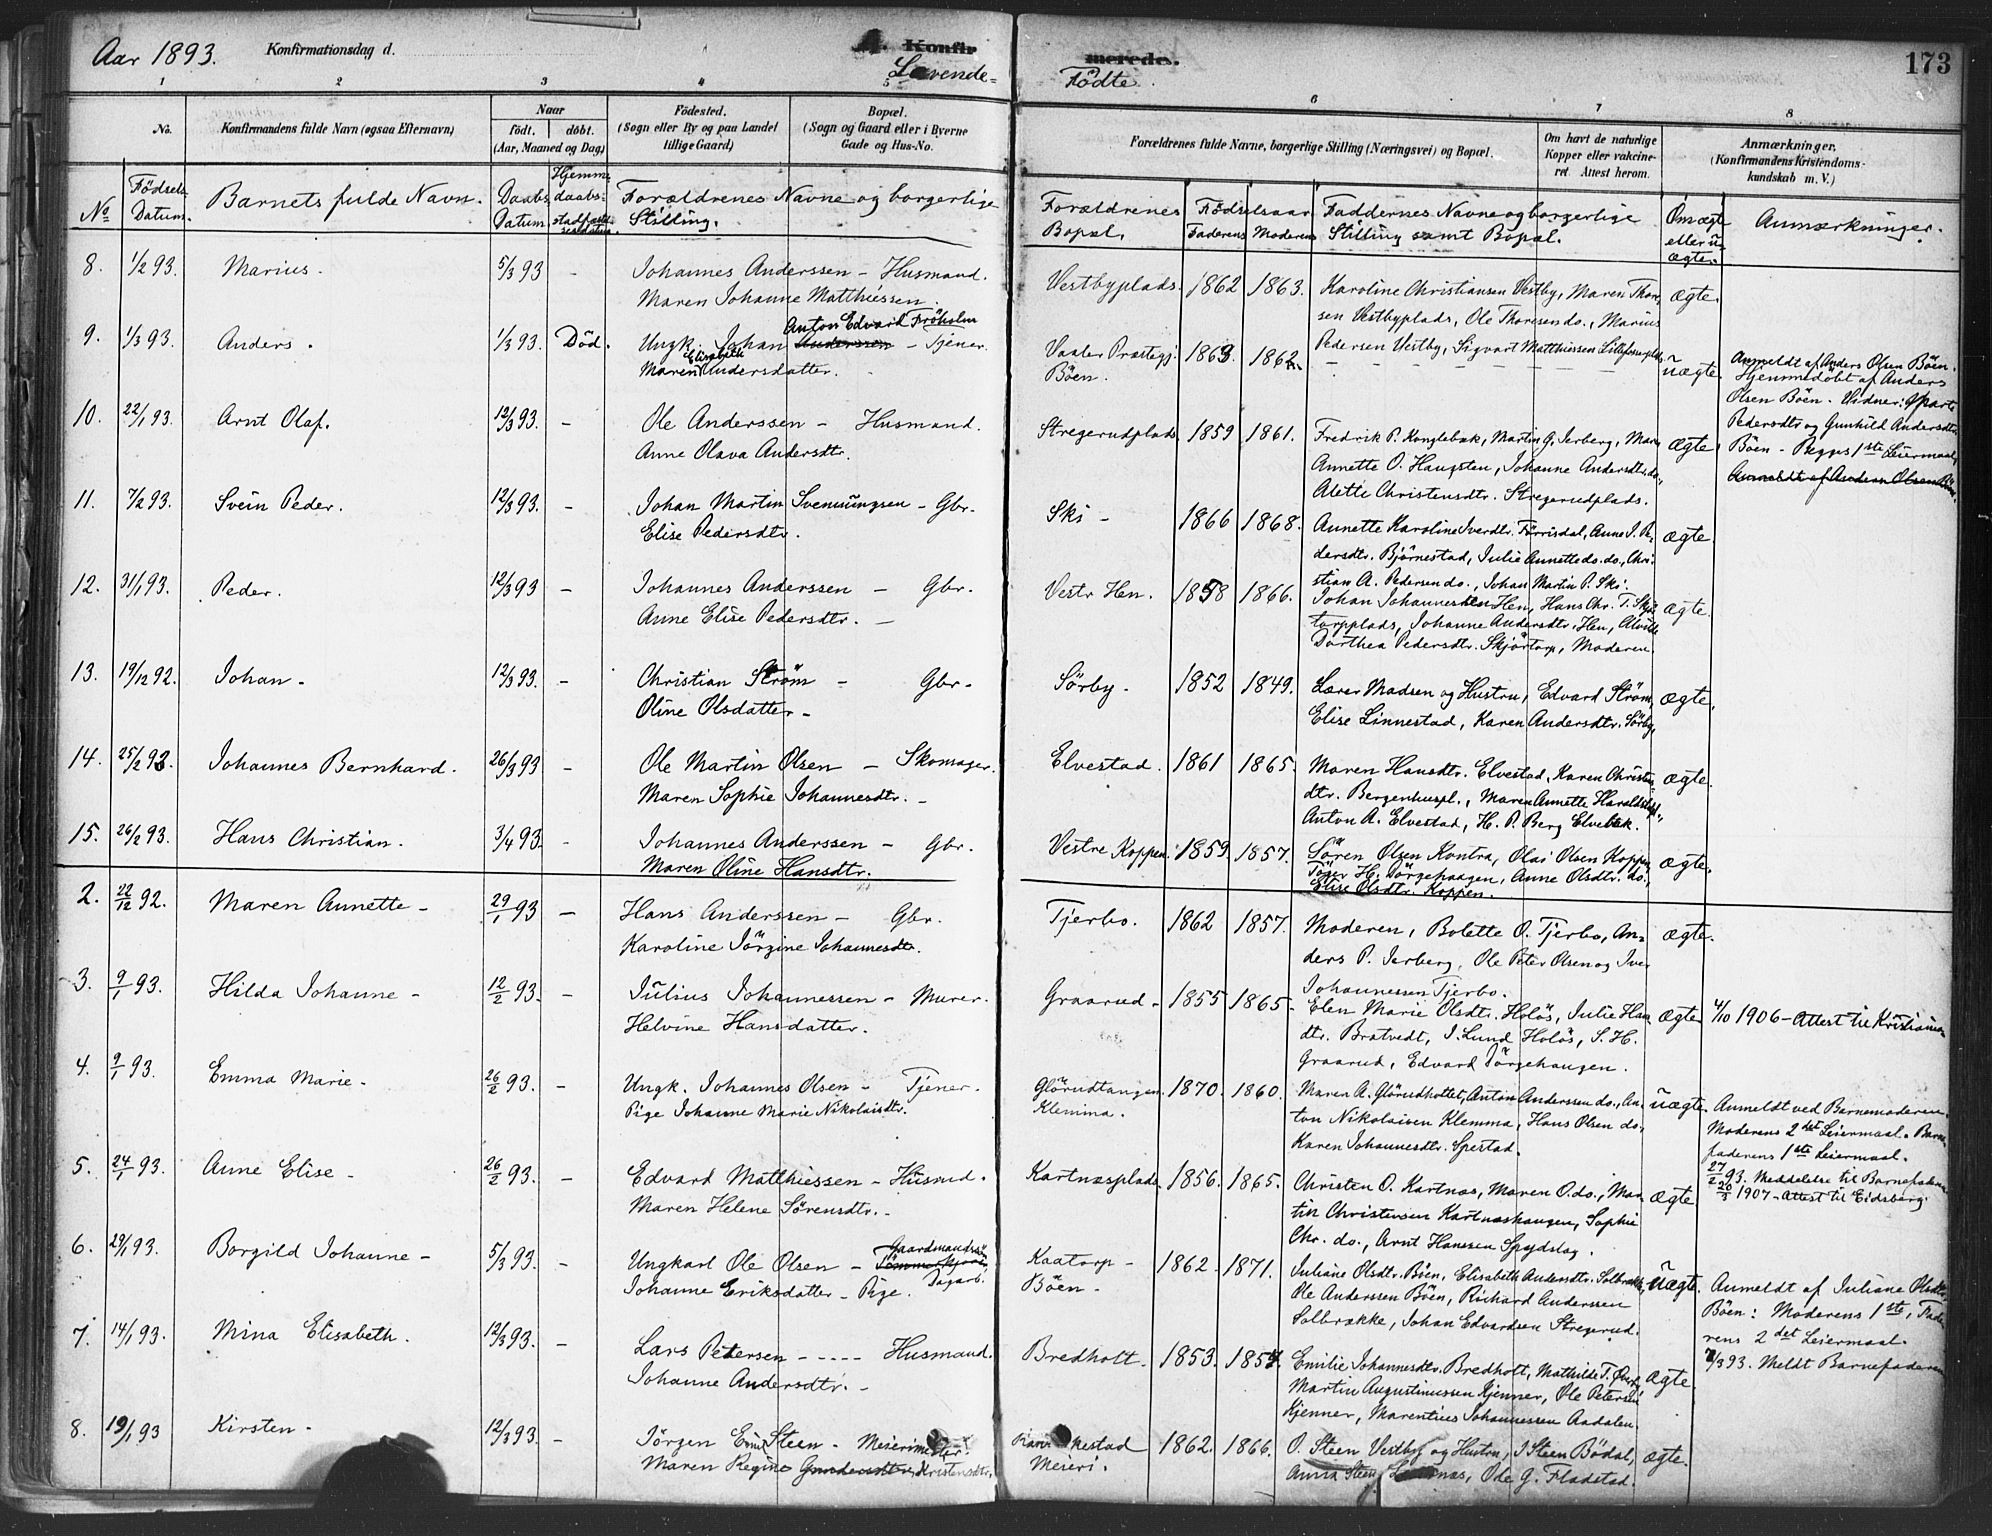 Aar 1893. Konfirmationsdag d. A. Konfir merede. 173
Levende= Fødte
1 2 3 4 5 6 7 8
No. Konfirmandens fulde Navn (ogsaa Efternavn) Naar født. døbt. (Aar, Maaned og Dag) Fødested. (Sogn eller By og paa Landet tillige Gaard) Bopæl. (Sogn og Gaard eller i Byerne Gade og Hus-No. Forældrenes fulde Navne, borgerlige Stilling (Næringsvei) og Bopæl. Om havt de naturlige Kopper eller vakcineret. Attest herom. Anmærkninger. (Konfirmandens Kristendomskundskab m. V.)
No Fødsels Datum. Barnets fulde Navn. Daabs Datum Hjemmedaabs- Forældrenes Navne og borgerlige Stilling. Forældrenes Bopæl. Fødselsaar Faderens Moderens Faddernes Navne og borgerlige Stilling samt Bopæl. Om ægte eller uægte. Anmærkninger.
8. 1/2 93. Marius. 5/3 93 - Johannes Anderssen - Husmand. Vestbyplads. 1862 1863. Karoline Christiansen Vestby, Maren Thor- ægte.
Maren Johanne Matthiessen. sen Vestbyplads, Ole Thoresen do., Marius
Pedersen Vestby, Sigvart Matthiessen
9. 1/3 93. Anders. 1/3 93. Død. Ungk. Johan Anderssen Anton Edvard Frøholm - Tjener. Vaaler Præstegj. 1863. 1862 uægte. Anmeldt af Anders Olsen Bøen.
Maren Elisabeth Andersdatter. Bøen. Hjemmedøbt af Anders
Olsen Bøen. Vidner:
10. 22/1 93. Arnt Olaf. 12/3 93 - Ole Anderssen - Husmand. Stregerudplads 1859 1861. Fredrik P. Konglebæk, Martin G. Jerberg, Mar- ægte. Pedersdtr og Gunhild Andersdtr.
Anne Olava Andersdtr. Annette O. Haugsten, Johanne Andersdtr. do., Bøen - Piges 1ste Leiermaal,
Alette Christensdtr. Stregerudplads. Anmeldt af Anders Olsen Bøen.
11. 7/2 93. Svein Peder. 12/3 93. - Johan Martin Svenningsen - Gbr. Ski - 1866 1868. Annette Karoline Iverdtr. Førrisdal, Anne I. Pe- ægte.
Elise Pedersdtr. dersdtr. Bjørnestad, Julie Annette do. do., Chri-
stian A. Pedersen do., Johan Martin P. Ski.
12. 31/1 93. Peder. 12/3 93 - Johannes Anderssen - Gbr. Vestr Hen. 1858 1866. Johan Johannessen Hen, Hans Chr. T. Skjør- ægte.
Anne Elise Pedersdtr. - torpplads, Johanne Andersdtr. Hen,
Dorthea Pedersdtr. Skjørtorp, Moderen.
13. 19/12 92. Johan. 12/3 93. - Christian Strøm - Gbr. Sørby. 1852 1849. Lærer Madsen og Hustru, Edvard Strøm, ægte.
Oline Olsdatter - Elise Linnestad, Karen Andersdtr. Sørby,
14. 25/2 93. Johannes Bernhard. 26/3 93 - Ole Martin Olsen - Skomager. Elvestad. 1861 1865. Maren Hansdtr. Elvestad, Karen Christens- ægte.
Maren Sophie Johannesdtr. - dtr. Bergenhuspl., Maren Annette
Anton A. Elvestad, H. P. Berg Elvebæk.
15. 26/2 93. Hans Christian. 3/4 93. - Johannes Anderssen - Gbr. Vestre Koppen. 1859. 1857. Søren Olsen Kontra, Olai Olsen Koppen, ægte.
Maren Oline Hansdtr. H. Børgehaugen, Anne Olsdtr. do.,
Elise Olsdtr. Koppen.
2. 22/12 92. Maren Annette - 29/1 93 - Hans Anderssen - Gbr. Tjerbo. 1862 1857. Moderen, Bolette O. Tjerbo, An- ægte.
Karoline Jørgine Johannesdtr. ders P. Jerberg, Ole Peter Olsen og Iver
Johannessen Tjerbo.
3. 9/1 93. Hilda Johanne - 12/2 93. - Julius Johannessen - Murer. Graarud - 1855 1865. Elen Marie Olsdtr. Holøs, Julie Hans- ægte. 4/10 1906 - Attest til Kristiania
Helvine Hansdatter. dtr. Bratvedt, J. Lund Holøs, S. H.
Graarud, Edvard Børgehaugen.
4. 9/1 93. Emma Marie - 26/2 93. - Ungk. Johannes Olsen - Tjener. Glørudtangen 1870. 1860. Maren A. Glørudholtet, Anton Anderssen do., An- uægte. Anmeldt ved Barnemoderen.
Pige Johanne Marie Nikolaisdtr. Klemma. ton Nikolaisen Klemma, Hans Olsen do., Moderens 2det Leiermaal. Barne-
Karen Johannesdtr. Spestad. faderens 1ste Leiermaal.
27/2 93. Meddelelse til Barnefaderen
5. 24/1 93. Anne Elise - 26/2 93. - Edvard Matthiessen - Husmd. Kartnæsplads. 1856. 1865. Christen O. Kartnæs, Maren O. do., Mar- ægte. 20/3 1907 - Attest til Eidsberg.
Maren Helene Sørensdtr. - tin Christensen Kartnæshaugen, Sophie
Chr. do., Arnt Hanssen Spydslag.
6. 29/1 93. Borgild Johanne - 5/3 93. - Ungkarl Ole Olsen - Gaardmandssøn Dagarb. Kaatorp - 1862. 1871. Juliane Olsdtr. Bøen, Elisabeth Andersdtr. Solbrække, uægte. Anmeldt af Juliane Olsdtr.
Johanne Eriksdatter - Pige. Bøen - Ole Anderssen Bøen, Richard Anderssen Bøen: Moderens 1ste, Fade-
Solbrække, Johan Edvardsen Stregerud. rens 2det Leiermaal.
7. 14/1 93. Mina Elisabeth. 12/3 93. - Lars Petersen - - - - Husmand. Bredholt. 1853. 1857. Emilie Johannesdtr. Bredholt, Mathilde T. ægte. 7/3 93. Meldt Barnefaderen
Johanne Andersdtr. - Martin Augustinussen Kjenner, Ole Petersen
Kjenner, Marentius Johannessen Aadalen.
8. 19/1 93 Kirsten - 12/3 93. - Jørgen Emil Steen - Meierimester. 1862. 1866. O. Steen Vestby og Hustru, J Steen Bødal, ægte.
Maren Regine Gundersdtr. Kristensdtr. Meieri. Anna Steen Ode G. Fladstad.